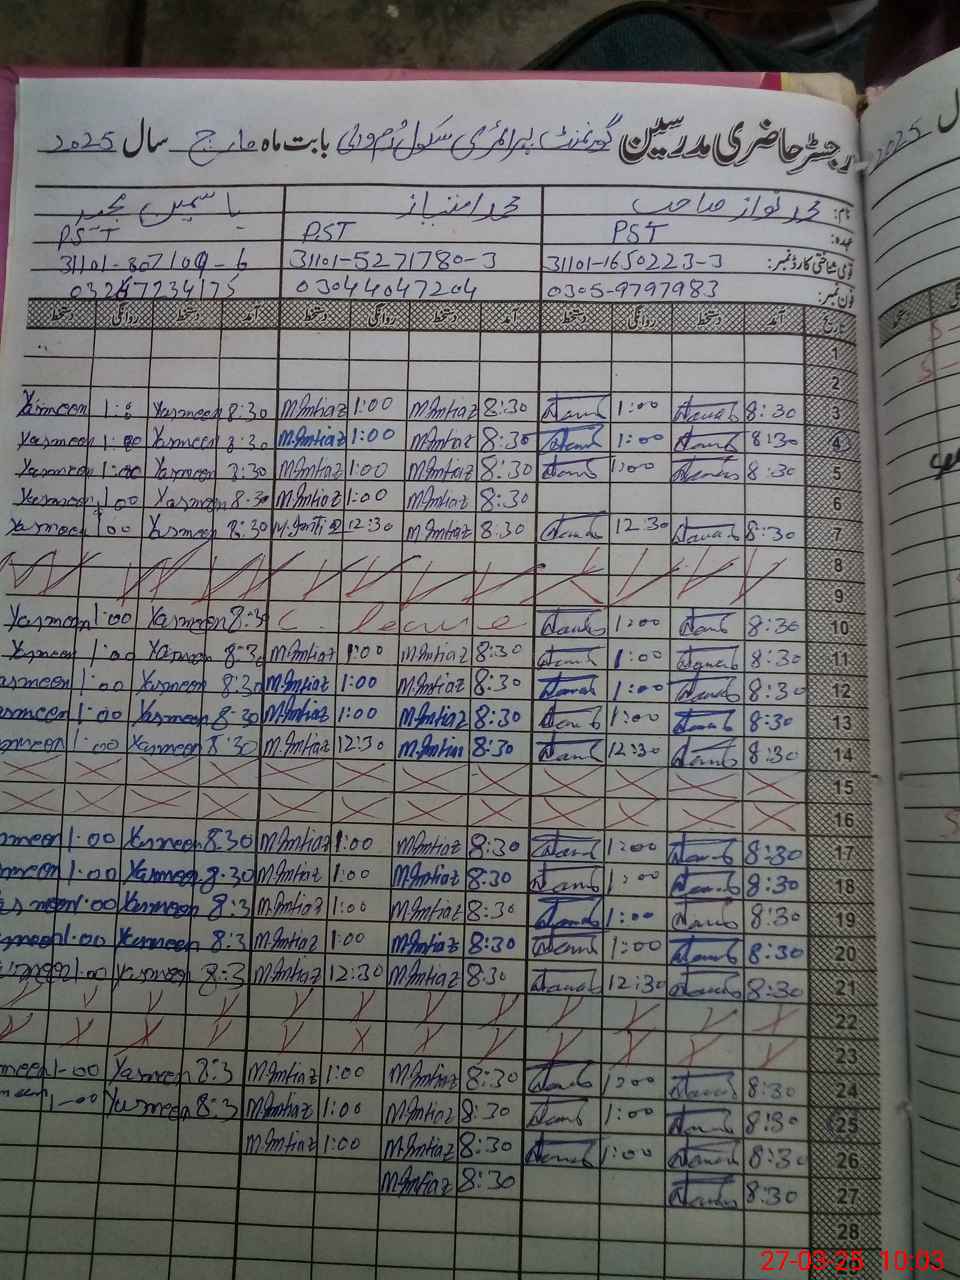 رجسٹر حاضری مدرسین گورنمنٹ پرائمری سکول بابت ماہ مارچ سال 2025
نام: محمد نواز صاحب محمد امتیاز یاسمین
عہدہ: PST PST PST
قومی شناختی کارڈ نمبر: 31101-1650223-3 31101-5271780-3 31101-807109-6
فون نمبر: 0305-9797983 03044047204 03267234175
تاریخ آمد دستخط روانگی دستخط آمد دستخط روانگی دستخط آمد دستخط روانگی دستخط
1
2
Yasmeen 1:00 Yasmeen 8:30 M.Imtiaz 1:00 M.Imtiaz 8:30 1:00 8:30 3
Yasmeen 1:00 Yasmeen 8:30 M.Imtiaz 1:00 M.Imtiaz 8:30 1:00 8:30 4
Yasmeen 1:00 Yasmeen 8:30 M.Imtiaz 1:00 M.Imtiaz 8:30 1:00 8:30 5
Yasmeen 1:00 Yasmeen 8:30 M.Imtiaz 1:00 M.Imtiaz 8:30 6
Yasmeen 1:00 Yasmeen 8:30 M.Imtiaz 12:30 M.Imtiaz 8:30 12:30 8:30 7
8
9
Yasmeen 1:00 Yasmeen 8:30 C. leave 1:00 8:30 10
Yasmeen 1:00 Yasmeen 8:30 M.Imtiaz 1:00 M.Imtiaz 8:30 1:00 8:30 11
asmeen 1:00 Yasmeen 8:30 M.Imtiaz 1:00 M.Imtiaz 8:30 1:00 8:30 12
asmeen 1:00 Yasmeen 8:30 M.Imtiaz 1:00 M.Imtiaz 8:30 1:00 8:30 13
smeen 1:00 Yasmeen 8:30 M.Imtiaz 12:30 M.Imtiaz 8:30 12:30 8:30 14
15
16
smeen 1:00 Yasmeen 8:30 M.Imtiaz 1:00 M.Imtiaz 8:30 1:00 8:30 17
meen 1:00 Yasmeen 8:30 M.Imtiaz 1:00 M.Imtiaz 8:30 1:00 8:30 18
asmeen 1:00 Yasmeen 8:3 M.Imtiaz 1:00 M.Imtiaz 8:30 1:00 8:30 19
smeen 1:00 Yasmeen 8:3 M.Imtiaz 1:00 M.Imtiaz 8:30 1:00 8:30 20
smeen 1:00 Yasmeen 8:3 M.Imtiaz 12:30 M.Imtiaz 8:30 12:30 8:30 21
22
23
meen 1-00 Yasmeen 8:3 M.Imtiaz 1:00 M.Imtiaz 8:30 1:00 8:30 24
meen 1-00 Yasmeen 8:3 M.Imtiaz 1:00 M.Imtiaz 8:30 1:00 8:30 25
M.Imtiaz 1:00 M.Imtiaz 8:30 1:00 8:30 26
M.Imtiaz 8:30 8:30 27
28
27-03-25 10:03